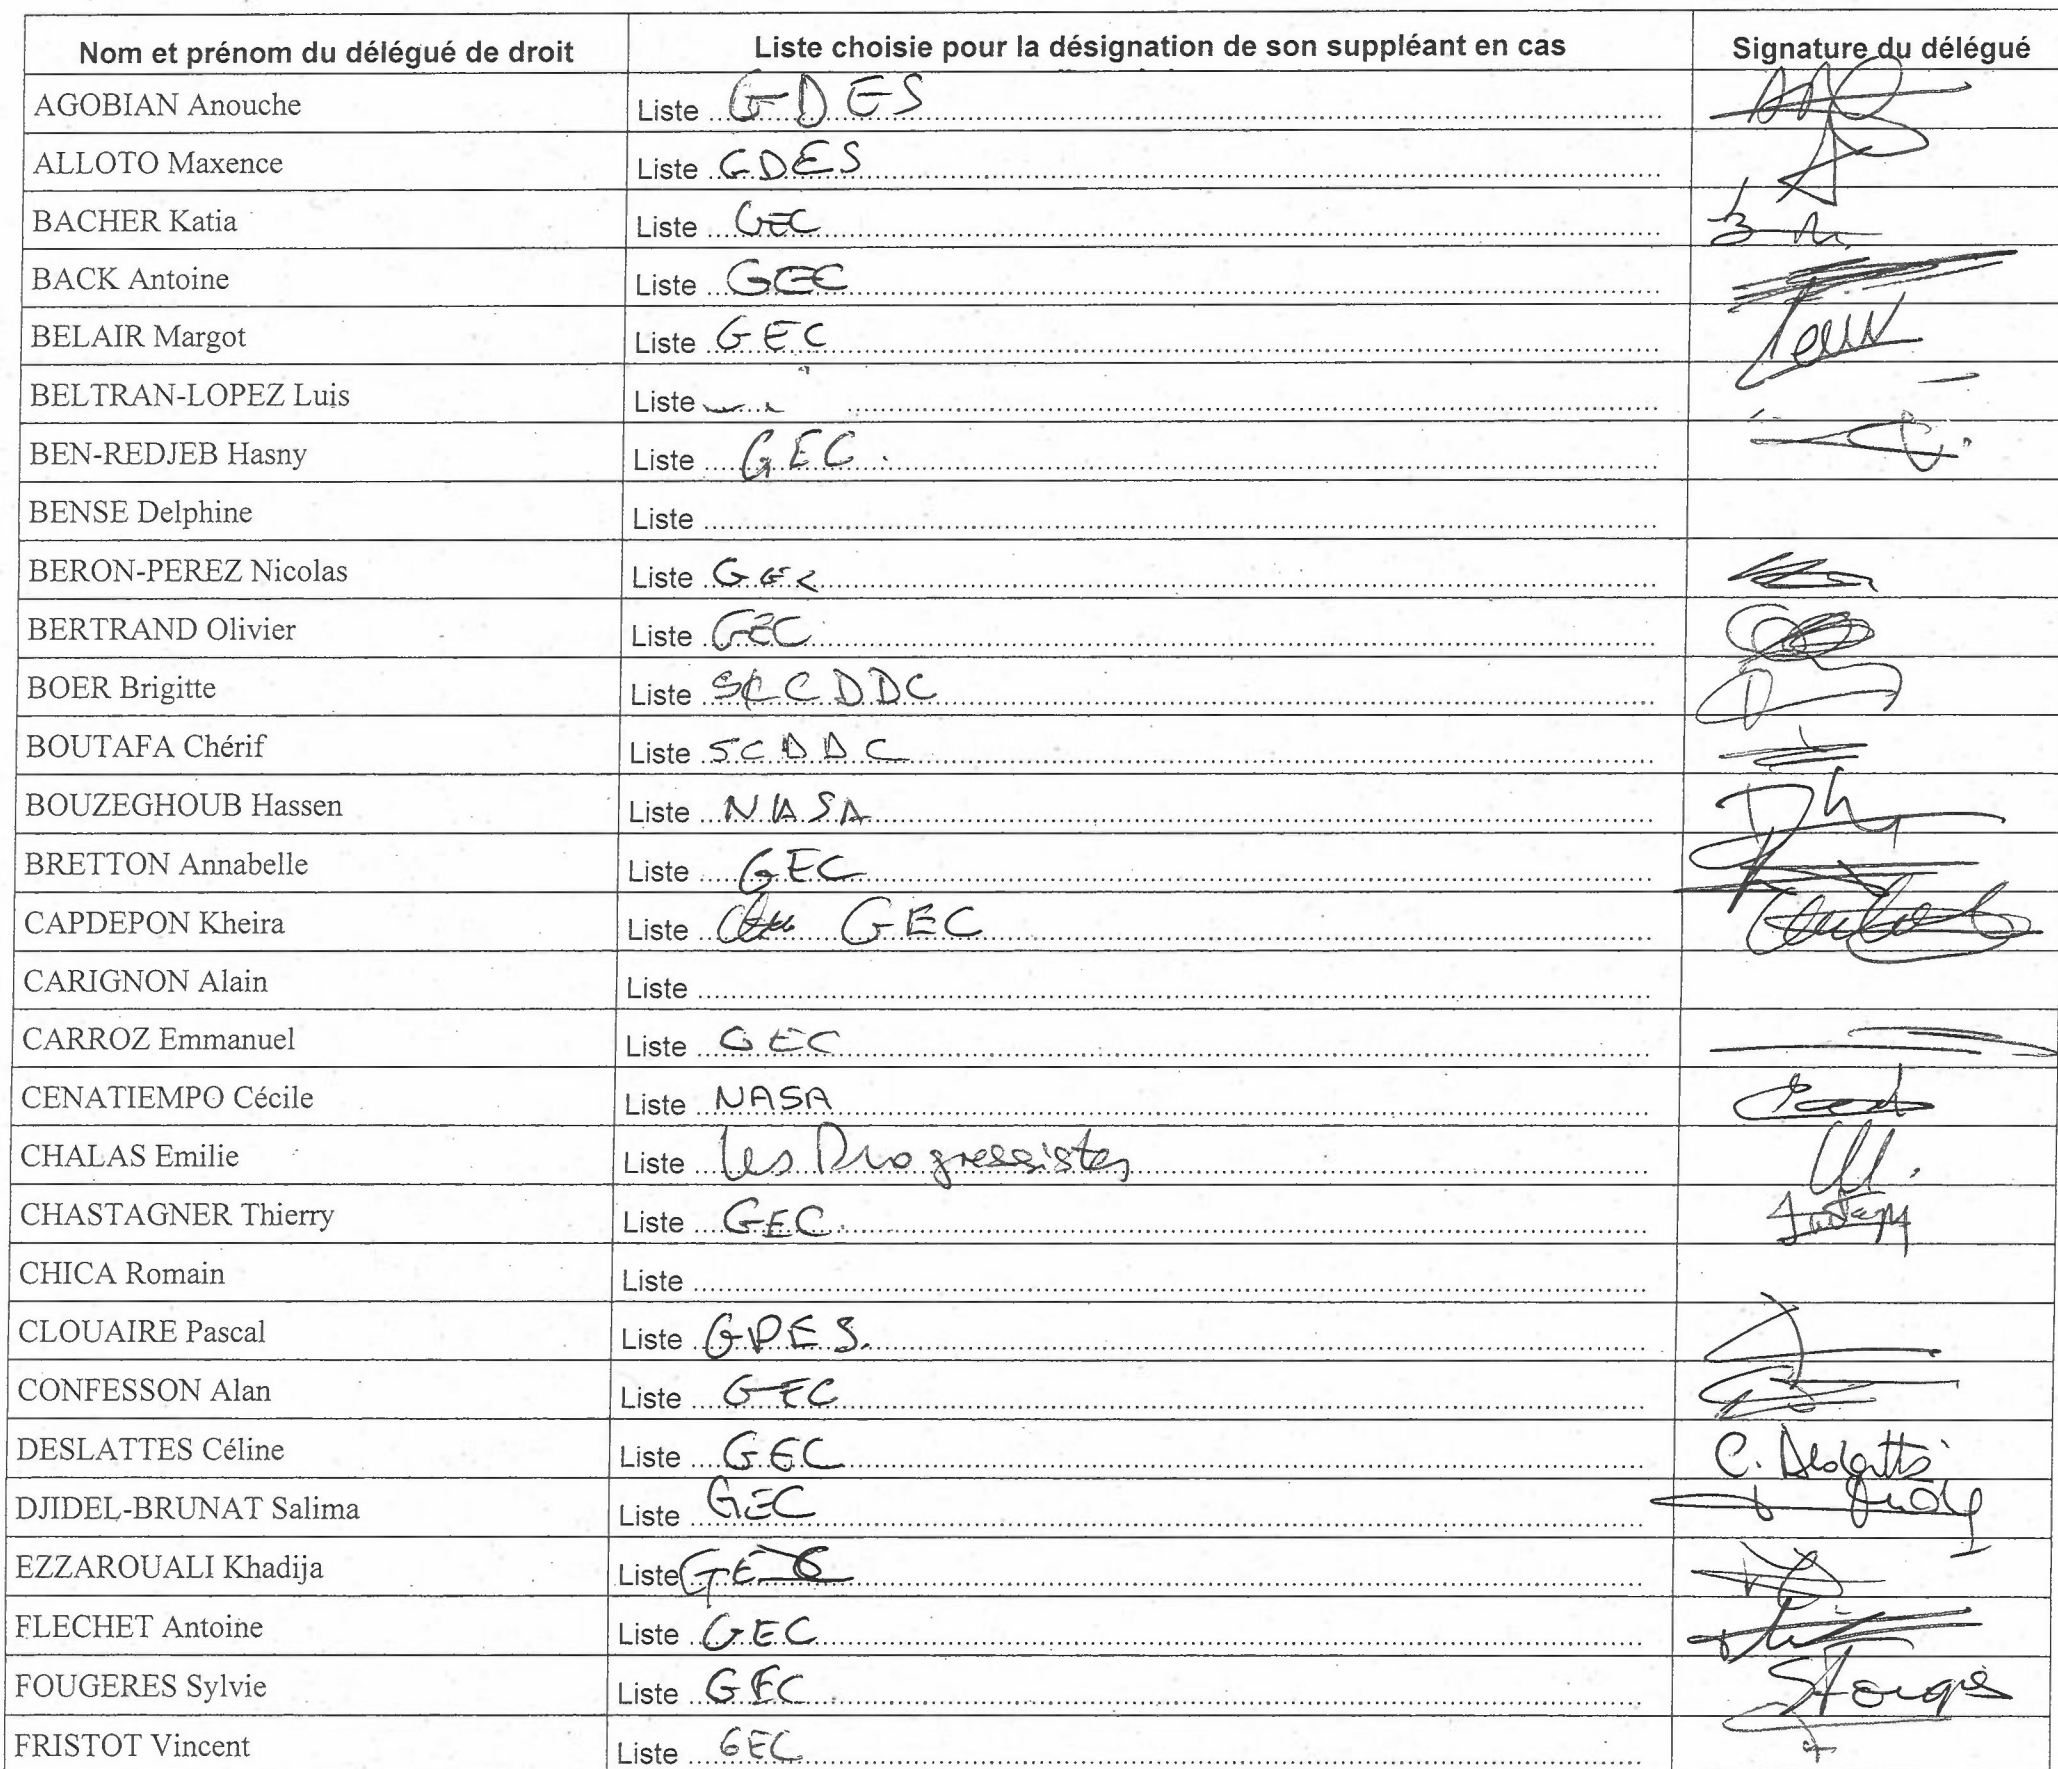 Nom et prénom du délégué de droit Liste choisie pour la désignation de son suppléant en cas Signature du délégué
AGOBIAN Anouche Liste GDES
ALLOTO Maxence Liste GDES
BACHER Katia Liste GEC
BACK Antoine Liste GEC
BELAIR Margot Liste GEC
BELTRAN-LOPEZ Luis Liste
BEN-REDJEB Hasny Liste GEC.
BENSE Delphine Liste
BERON-PEREZ Nicolas Liste GEC
BERTRAND Olivier Liste GEC
BOER Brigitte Liste SCCDDC
BOUTAFA Chérif Liste SCDDC
BOUZEGHOUB Hassen Liste NASA
BRETTON Annabelle Liste GEC
CAPDEPON Kheira Liste GEC
CARIGNON Alain Liste
CARROZ Emmanuel Liste GEC
CENATIEMPO Cécile Liste NASA
CHALAS Emilie Liste Les Progressistes
CHASTAGNER Thierry Liste GEC.
CHICA Romain Liste
CLOUAIRE Pascal Liste GDES.
CONFESSON Alan Liste GEC
DESLATTES Céline Liste GEC C.
DJIDEL-BRUNAT Salima Liste GEC
EZZAROUALI Khadija Liste GEC
FLECHET Antoine Liste GEC
FOUGERES Sylvie Liste GEC
FRISTOT Vincent Liste GEC